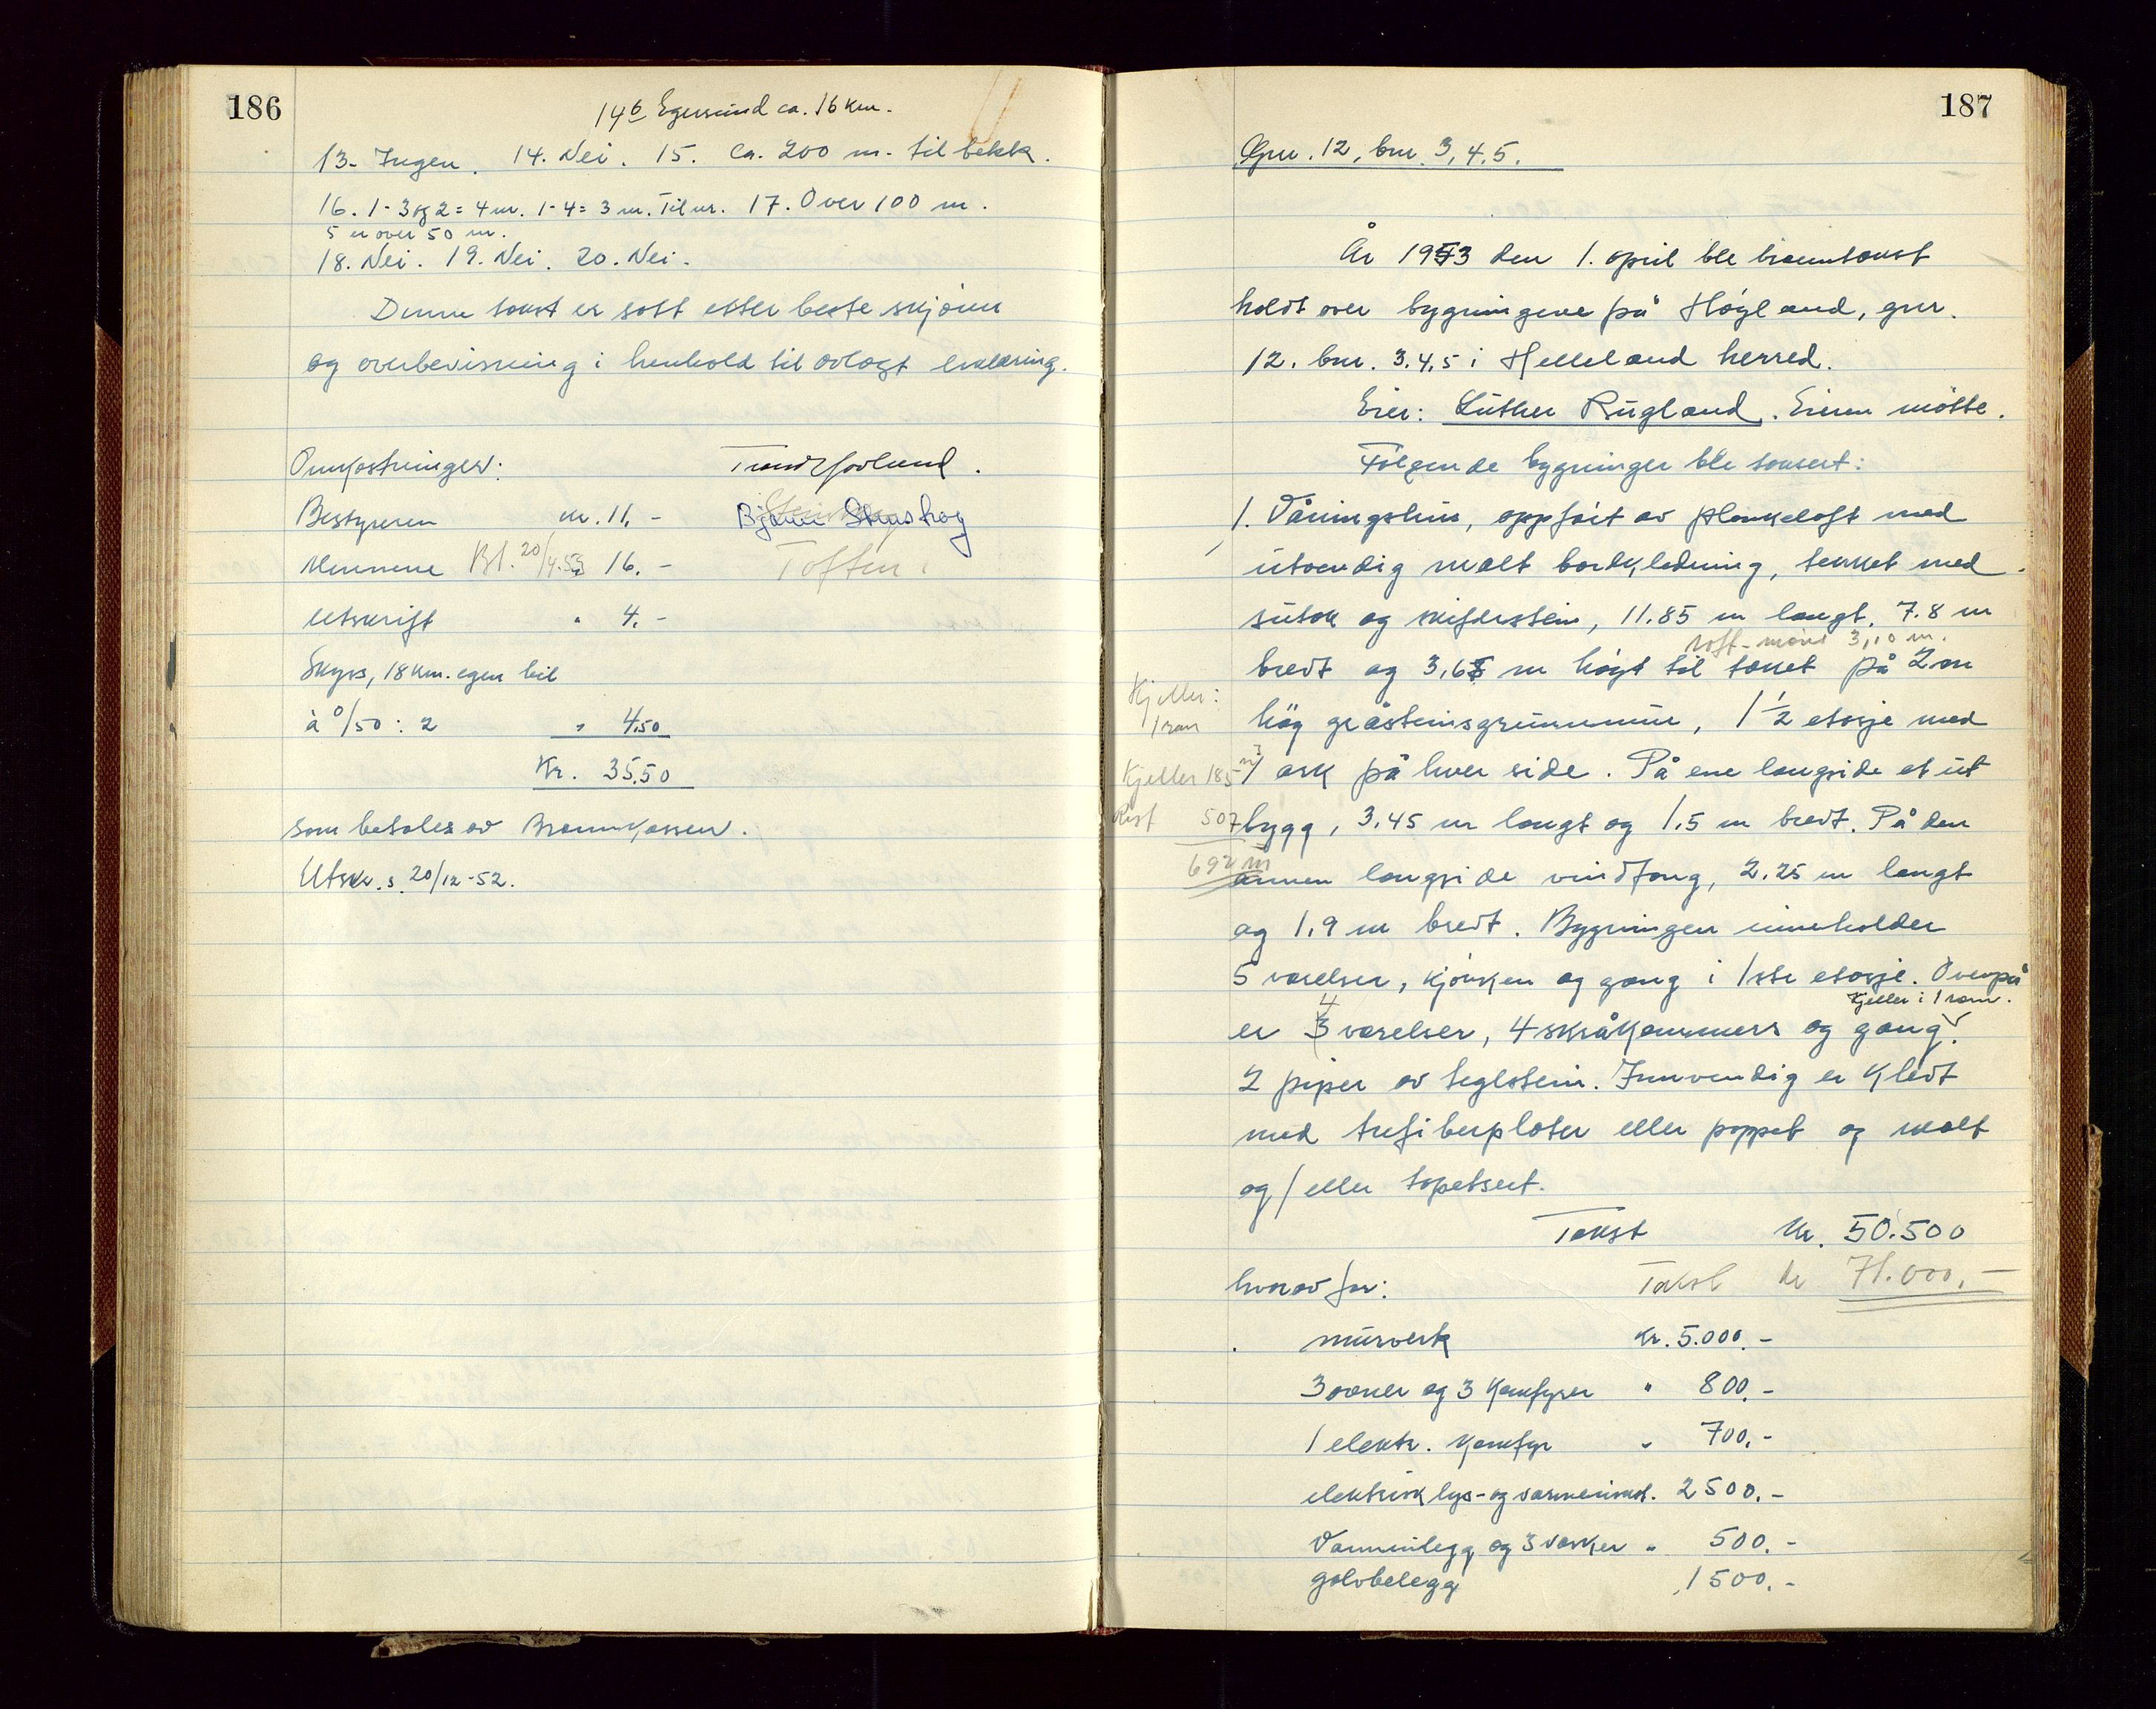 186
14b Egersund ca. 16 km.
13- Ingen. 14. Nei. 15. Ca. 200 m. til bekk.
16. 1-3 og 2 = 4 m. 1-4 = 3 m. Til nr. 17. Over 100 m.
5 er over 50 m.
18. Nei. 19. Nei. 20. Nei.
Denne takst er satt etter beste skjønn
og overbevisning i henhold til avlagt erklæring.
Omkostninger:
Bestyreren kr. 11, -
Mennene Bt. 20/4.53 " 16. -
Utskrift " 4. -
Skyss, 18 km. egen bil
à 0/50 : 2 " 4.50
Kr. 35.50
som betales av Brannkassen.
Utskr. s. 20/12-52.
Bjarne
Toften
187
Gnr. 12, bnr. 3, 4. 5.
År 1953 den 1. april ble branntakst
holdt over bygningene på Høgland, gnr.
12. bnr. 3. 4. 5 i Helleland herred.
Eier: Luther Rugland. Eieren møtte.
Følgende bygninger ble taksert:
1. Våningshus, oppført av plankeloft med
utvendig malt bordkledning, tekket med
sutak og skiferstein, 11.85 m langt, 7.8 m
loft-møne 3,10 m.
bredt og 3,65 m høgt til taket på 2 m
Kjeller:
1 rom
høg gråsteinsgrunnmur, 1 1/2 etasje med
Kjeller 185 m3
1 ark på hver side. På ene langside et ut
Rest 507
bygg, 3.45 m langt og 1,5 m bredt. På den
692 m
annen langside vindfang, 2.25 m langt
og 1,9 m bredt. Bygningen inneholder
5 værelser, kjøkken og gang i 1ste etasje. Ovenpå
4
kjeller i 1 rom.
er 3 værelser, 4 skråkammers og gang.
2 piper av teglstein. Innvendig er kledt
med trefiberplater eller pappet og malt
og/eller tapetsert.
Takst Kr. 50.500
hvorav for: Takst kr 71.000,-
murverk kr. 5.000.-
3 ovner og 3 komfyrer " 800.-
1 elektr. komfyr " 700,-
elektrisk lys- og varmeinnl. 2500.-
Vanninlegg og 3 vasker " 500.-
golvbelegg 1500.-